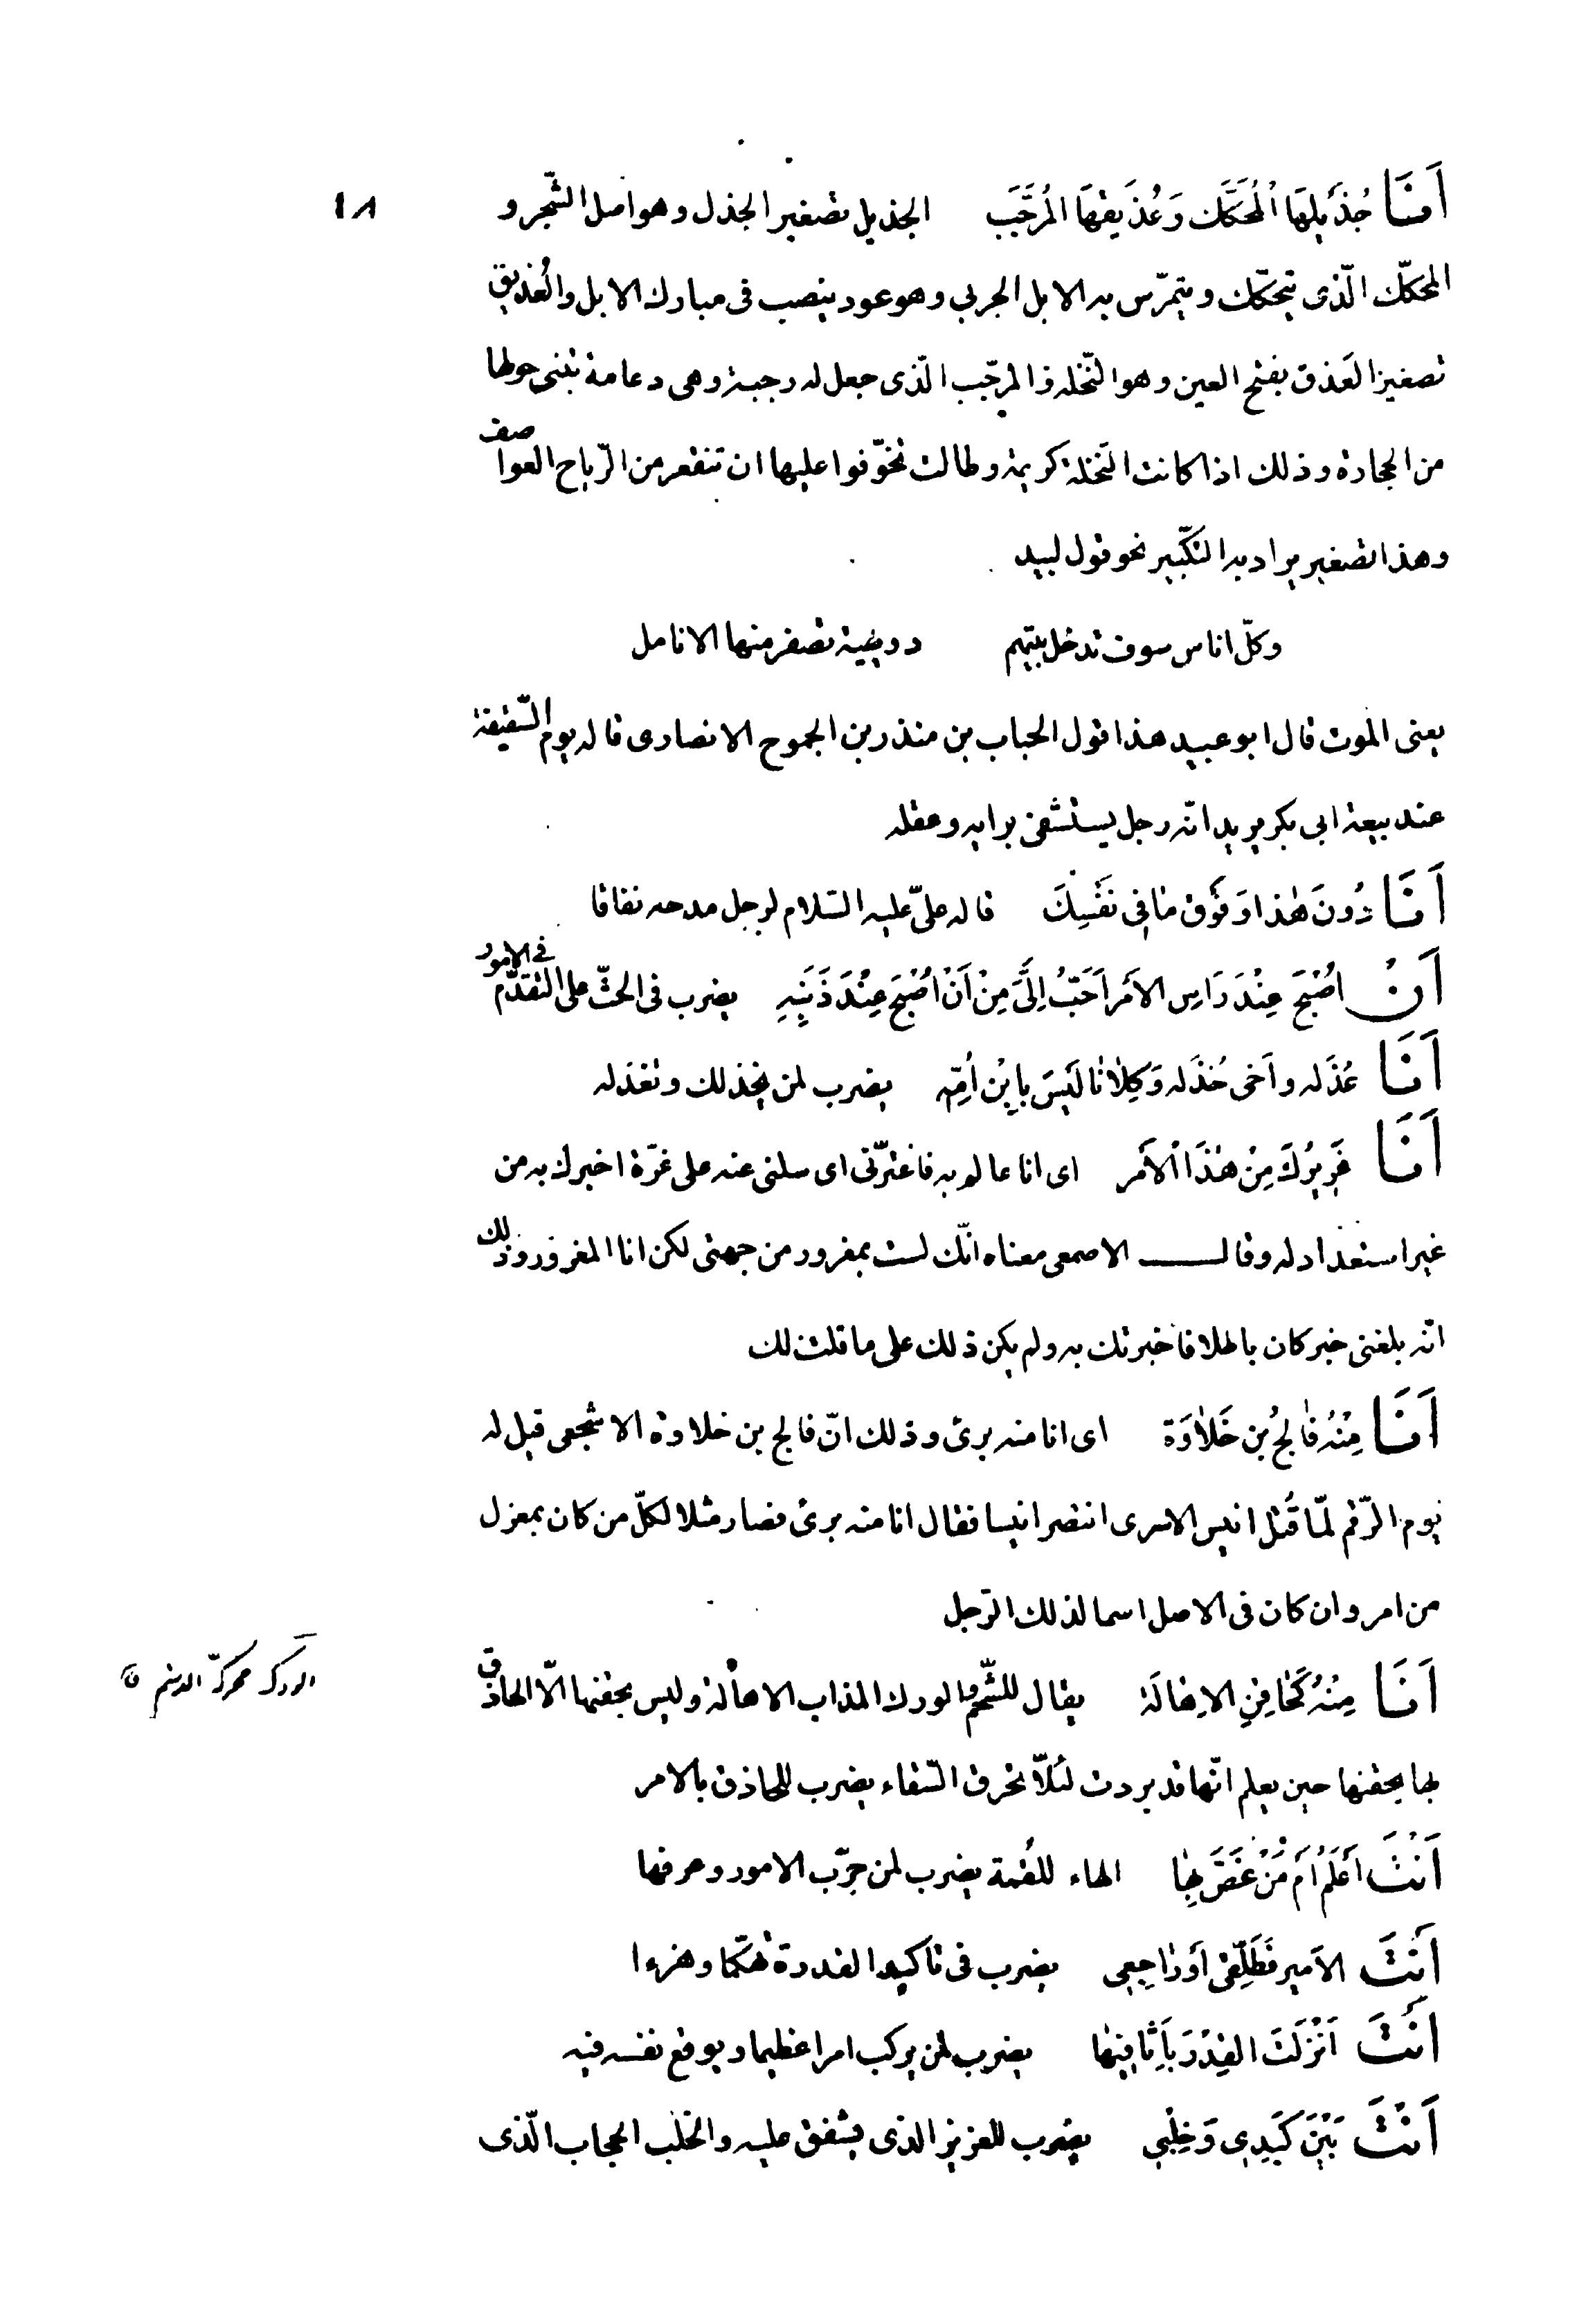 اَنَا جُذَيلهَا الْمُحَكَّك وَعُذَيقهَا المُرَجَّبَ الجذيل تصغير الجذل وهو اصل الشّجر و
١٨
المحكّك الّذى تتحكّك و يتمرّس به الابل الجربى وهو عود ينصب فى مبارك الابل والعُذيق
تصغير العَذق بفتح العين وهو النّخلة و المرجّب الّذى جعل له رجبة وهى دعامة تبنى حولها
من الحجارة وذلك اذا كانت النّخلة كريمة وطالت تخوّفوا عليها ان تنقعر من الرّياح العواصف
وهذا تصغير يراد به التكّبير نحو قول لبيد
وكلّ اناس سوف تدخل بيتهم دويهية تصفر منها الانامل
يعنى الموت قال ابو عبيد هذا قول الحباب بن منذر بن الجموح الانصارى قاله يوم السّقيفة
عند بيعة ابى بكر يريد انّه رجل يستشفى برايه وعقله
اَنَا دُونَ هٰذا وَفَوْق مٰا فِى نَفْسِكَ قاله علىّ عليه السّلام لرجل مدحه نفاقا
اَنْ اُصْبِحَ عِنْدَ رَاسِ الاَمْرِ اَحَبُّ اِلَىَّ مِنْ اَنْ اُصْبِحَ عِنْدَ ذَنَبِهِ يضرب فى الحثّ على التقدّم فى الامور
اَنَا عُذَله و اَخى خُذَله وَكِلاٰنٰا لَيْسَ بِابْنِ اُمِّه يضرب لمن يخذلك وتعذله
اَنَا غَرِيرُكَ مِنْ هٰذَا الْاَمْر اى انا عالم به فاغترّنى اى سلنى عنه على غرّة اخبرك به من
غير استعداد له وقال الاصمعى معناه انّك لست بمغرور من جهتى لكن انا المغرور وذلك
انّه بلغنى خبر كان باطلا فاخبرتك به ولم يكن ذلك على ما قلت لك
اَنَا مِنْهُ فٰالِجُ بن خَلاٰوَة اى انا منه برىٔ وذلك انّ فالج بن خلاوة الاشجعى قيل له
يوم الرّقم لمّا قُتل انيس الاسرى اتنصر انيسا فقال انا منه برىٔ فصار مثلا لكلّ من كان بمعزل
من امر وان كان فى الاصل اسما لذلك الرّجل
اَنَا مِنْهُ كَحٰاقِنِ الاِهٰالَة يقال للشّحم والودك المذاب الاهالة وليس يحقنها الّا الحاذق
الودك محركّة الدسم ق
بها يحقنها حين يعلم انّها قد بردت لئلاّ تحرق السّقاء يضرب للحاذق بالامر
اَنْتَ اَعْلَمُ اَم مَنْ غَصَّ بِهٰا الهاء للقُمة يضرب لمن جرّب الامور وعرفها
اَنْتَ الاَمير فَطَلِّقى اَوْ رٰاجِعِى يضرب فى تاكيد القدرة تهكّما وهزءا
اَنْتَ اَنْزَلتَ القِدْرَ بِاَثٰافِيهٰا يضرب لمن يركب امرا عظيما ويوقع نفسه فيه
اَنْتَ بَيْنَ كَبَدِى وَخِلْبِى يضرب للعزيز الذى يشفق عليه والخلب الحجاب الّذى